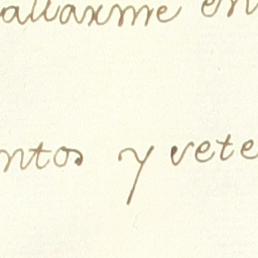 allarme en
ntos y vete